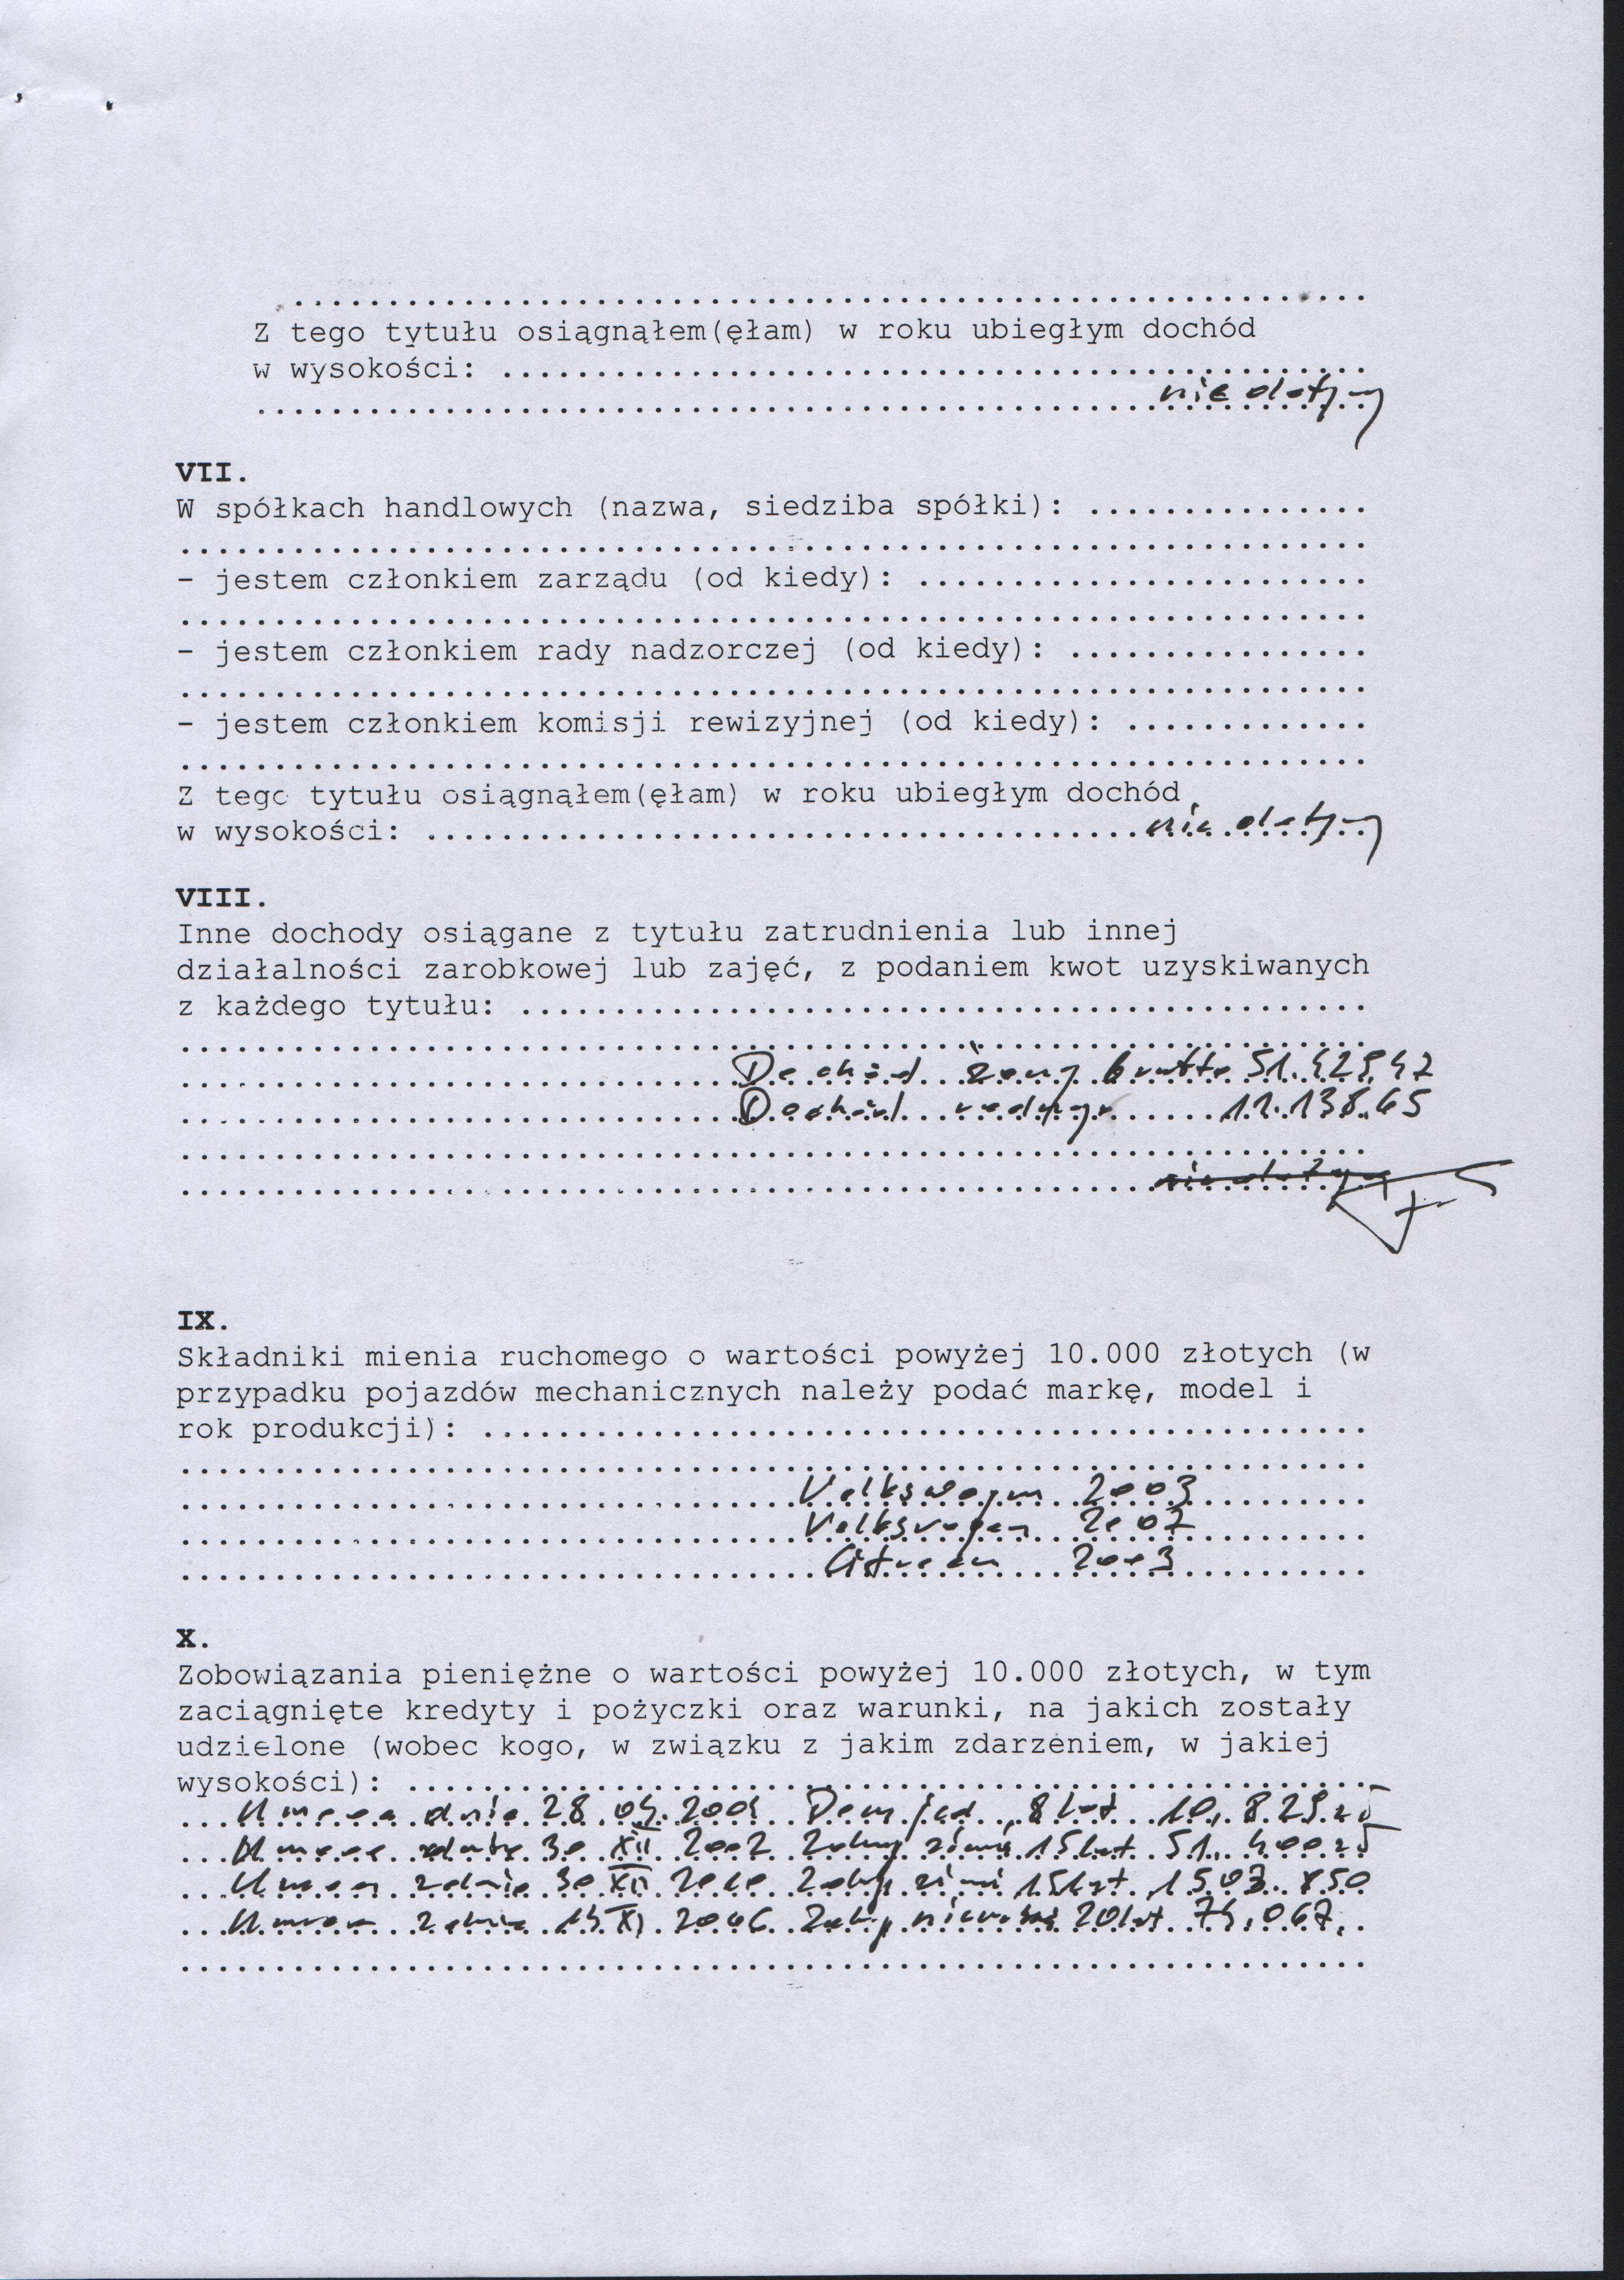 ................................................................
Z tego tytułu osiągnąłem(ęłam) w roku ubiegłym dochód
w wysokości: ..............................................
nie dotyczy
VII.
W spółkach handlowych (nazwa, siedziba spółki): ...............
...............................................................
- jestem członkiem zarządu (od kiedy): ........................
...............................................................
- jestem członkiem rady nadzorczej (od kiedy): ................
...............................................................
- jestem członkiem komisji rewizyjnej (od kiedy): .............
...............................................................
Z tego tytułu osiągnąłem(ęłam) w roku ubiegłym dochód
w wysokości: ...................................... nie dotyczy
VIII.
Inne dochody osiągane z tytułu zatrudnienia lub innej
działalności zarobkowej lub zajęć, z podaniem kwot uzyskiwanych
z każdego tytułu: .............................................
...............................................................
Dochód żony brutto 51.429,42
Dochód 11.138,65
...............................................................
nie dotyczy
IX.
Składniki mienia ruchomego o wartości powyżej 10.000 złotych (w
przypadku pojazdów mechanicznych należy podać markę, model i
rok produkcji): ...............................................
...............................................................
Volkswagen 2003
Volksvagen 2007
Citroen 2003
X.
Zobowiązania pieniężne o wartości powyżej 10.000 złotych, w tym
zaciągnięte kredyty i pożyczki oraz warunki, na jakich zostały
udzielone (wobec kogo, w związku z jakim zdarzeniem, w jakiej
wysokości): ...................................................
Umowa dnia 28 8 lat
Umowa 30 XII 2002 Zakup ziemi 15 lat 51. 400 zł
Umowa z dnia 30 XII Zakup ziemi 15 lat
Umowa z dnia XI Zakup 20 lat
...............................................................